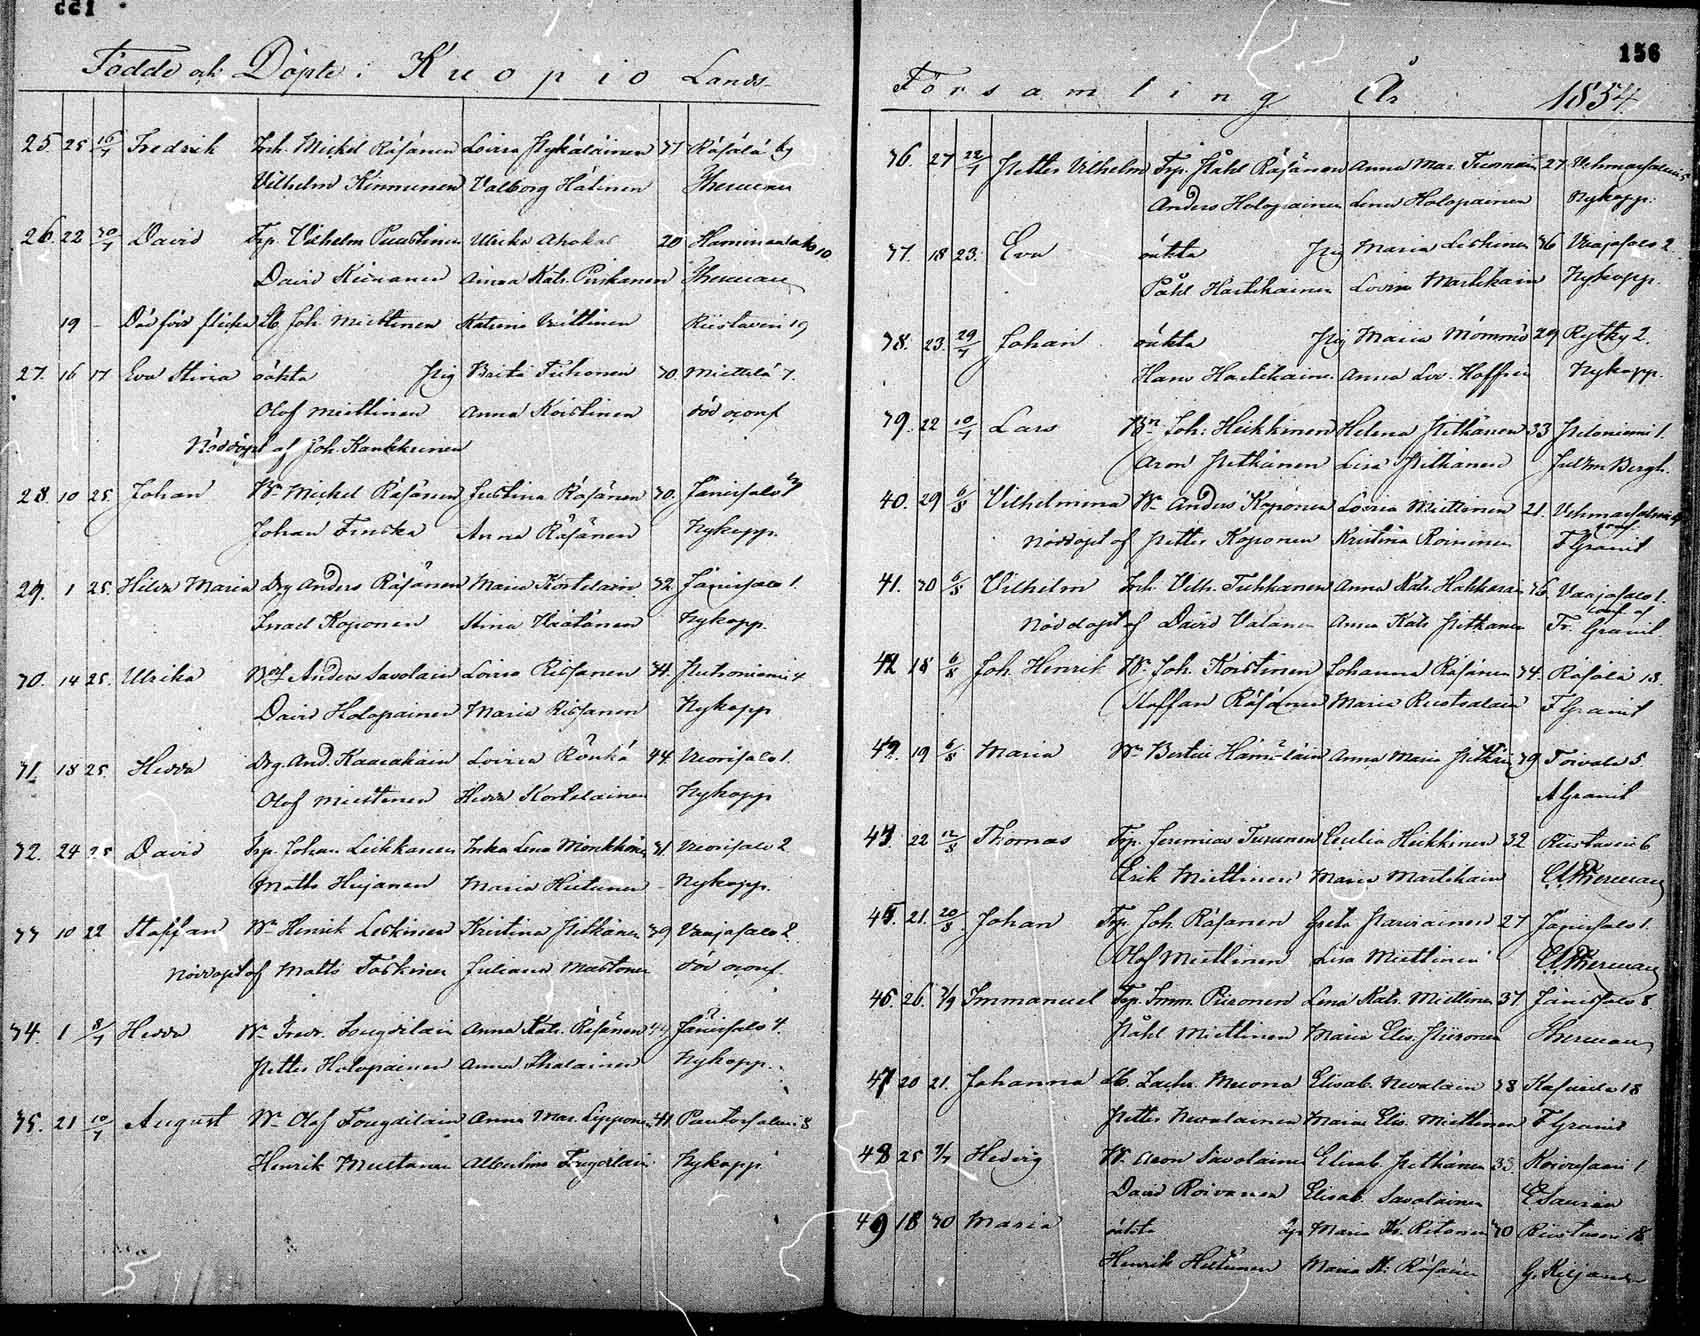 155
Födde och Döpte i Kuopio Lands-
25. 25 16/7 Fredrik Inh. Mickel Räsänen Lovisa Hykäläinen 37 Räsälä
Vilhelm Kinnunen Valborg Hätinen Therman
26. 22 30/7 David Trp. Vilhelm Puustinen Ulrika Ahokas 20 Haminanlaks 10
David Kinnunen Anna Katr. Pirskanen Therman
19 - Död föd flicka Lb. Joh. Miettinen Katrina Väittinen Riistaveri 19
27. 16 17 Eva Stina oäkta Pig Brita Tiihonen 30. Miettilä 7.
Olof Miettinen Anna Koistinen död oconf.
Nöddöpt af Joh. Kankkunen
28. 10 25. Johan Bn Mickel Räsänen Justina Räsänen 30. Jänissalo
Johan Tuuska Anna Räsänen Nykopp
29. 1 25. Hedda Maria Drg Anders Räsänen Maria Kortelain 32. Jänissalo 1.
Israel Koponen Stina Väätänen Nykopp.
30. 14 25. Ulrika Anders Savolain Lovisa Rissanen 34. Putroniemi 4
David Holopainen Maria Rissanen Nykopp
31. 18 25. Hedda Drg. And. Kaurakain Lovisa Rönkä 44. Vuorisalo 1.
Olof Miettinen Hedda Kortelainen Nykopp
32. 24 25 David Trp. Johan Leikkanen Inka Lena Mönkkönen 31. Vuorisalo 2
Matts Hujanen Maria Hiltunen Nykopp.
33 10 22 Staffan Bn Henrik Leskinen Kristina Pitkänen 39 Vaajasalo 2.
Nöddöpt af Matts Taskinen Juliana Mustonen död oconf.
34. 1 8/7 Hedda Bn Fredr. Fougdilain Anna Katr. Räsänen 44 Jänissalo 4.
Petter Holopainen Anna Ihalainen Nykopp.
35. 21 10/7 August Bn Olof Fougdilain Anna Mar. Lipponen 41. Puutosalmi 8
Henrik Mustonen Albertina Fougdilain Nykopp
156
Församling År 1854
36. 27 22/7 Petter Vilhelm Trp. Påhl Räsänen Anna Mar. Tuomain 27 Vehmassalmi 5
Anders Holopainen Lena Holopainen Nykopp.
37. 18 23. Eva oäkta Pig Maria Leskinen 36 Vaajasalo 2
Påhl Hartikainen Lovisa Martikain Nykopp.
38. 23. 29/7 Johan oäkta Pig Maria Mömmö 29 Rytky 2.
Hans Hartikainen Anna Lov. Hoffren Nykopp.
39. 22 10/7 Lars Bn Joh. Heikkinen Helena Pitkänen 33 Putoniemi 1.
Aron Pitkänen Lisa Pitkänen Bergh.
40. 29 6/8 Vilhelmina Bn Anders Koponen Lovisa Miettinen 21. Vehmassalmi 4
Nöddöpt af Petter Koponen Kristina Roininen conf. F Granit
41. 30 6/8 Vilhelm Inh. Vilh. Tuhkanen Anna Katr. Hakkarain 36. Vaajasalo 1.
Nöddöpt af David Valanen Anna Katr. Pitkänen conf. af Fr. Granit
42 18 6/8 Joh. Henrik Bn Joh. Koistinen Johanna Räsänen 34. Räsälä 13.
Staffan Räsänen Maria Ruotsalain F Granit
42. 19 6/8 Maria Bn Bertil Hämäläin Anna Maria Pitkän 39 Toivala 5
A Granit
43 22 12/8 Thomas Trp. Jeremias Turunen Cecilia Heikkinen 32 Riistaveri 6
Erik Miettinen Maria Martikain Therman
45. 21. 20/8 Johan Trp. Joh. Räsänen Greta Parviainen 27 Jänissalo 1.
Olof Miettinen Lisa Miettinen Therman
46. 26. 3/9 Immanuel Trp. Imm. Piironen Lena Katr. Miettinen 37 Jänissalo 8
Påhl Miettinen Maria Elis. Piironen Therman
47 20 21. Johanna Lb. Zachr. Muona Elisab. Nevalain 38 Kasurila 18
Petter Nevalainen Maria Elis. Miettinen F Granit
48 25 Hedvig Bn Aron Savolainen Elisab. Pitkänen 35 Koivusaari 1
David Roivanen Elisab. Savolainen E Saurén
49 18 30 Maria oäkta Maria Kr. Ritonen 30 Riistaveri 18
Henrik Hiltunen Maria Kr. Räsänen G. Kiljander